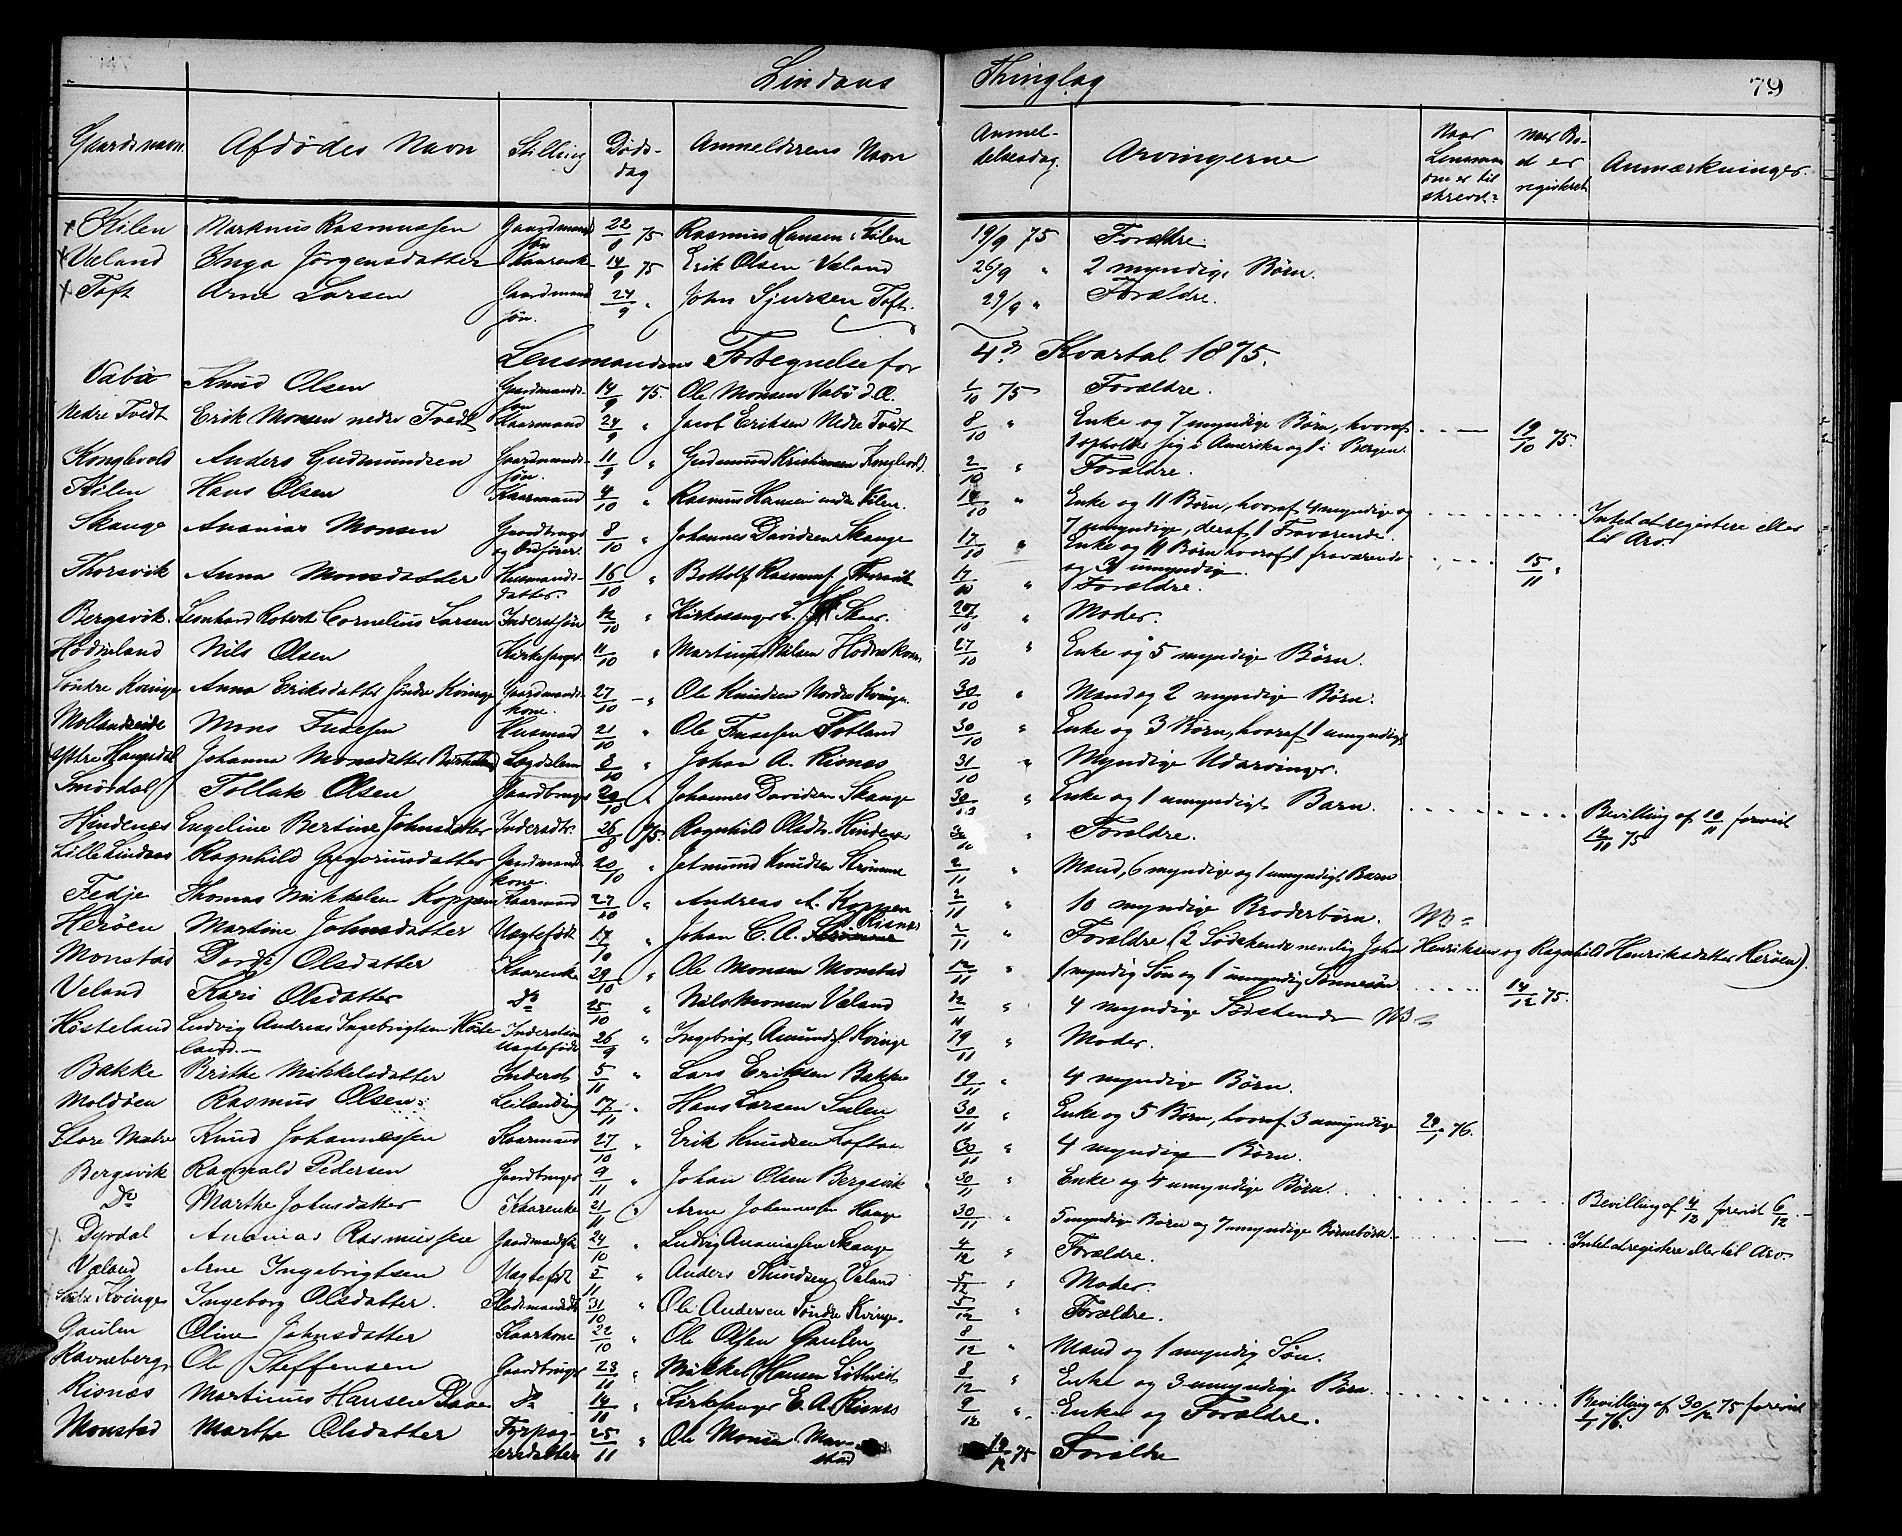 Lindaas Thinglag 79
Gaardsnavn Afdødes Navn Stilling Døds-dag Anmelderens Navn Anmel-delsesdag Arvingerne Naar Lensmanden er til skrevet Naar Bo-et er registreret Anmærkninger
Kilen Markus Rasmussen Gaardmands søn 22/8 75 Rasmus Hansen Kilen 19/9 75 Forældre.
Væland Inga Jørgensdatter Kaarenke 14/9 75 Erik Olsen Væland 26/9 " 2 myndige Børn.
Toft Arne Larsen Gaardmands søn. 24/9 " John Sjursen Toft. 29/9 " Forældre.
Lensmandens Fortegnelse for 4de Kvartal 1875.
Vabø Knud Olsen Gaardmands søn 14/9 75. Ole Monsen Vabø d.Æ. 1/10 75 Forældre.
Nedre Tvedt Erik Monsen nedre Tvedt Kaarmand 24/9 " Jacob Eriksen Nedre Tvedt 8/10 " Enke og 7 myndige Børn, hvoraf 19/10 75.
1 opholder sig i Amerika og 1 i Bergen.
Konglevold Anders Gudmundsen Gaardmands-søn. 11/9 " Gudmund Kristiansen Konglevold. 2/10 " Forældre.
Kilen Hans Olsen Kaarmand 4/10 " Rasmus Hansen Kilen. 14/10 " Enke og 11 Børn, hvoraf 4 myndige og Intet at registere eller
7 umyndige, deraf 1 Fraværende. til Arv.
Skauge Ananias Monsen Gaardbruger og 8/10 " Johannes Davidsen Skauge 17/10 " Enke og 11 Børn hvoraf 1 fraværende 15/11 "
og 3 umyndig.
Thorsvik Anna Monsdatter Husmands-datter. 16/10 " Bottolf Rasmus. Thorsvik 17/10 " Forældre.
Bergsvik Leonhard Robert Cornelius Larsen Inderstsøn 12/10 " Kirkesanger L. Skaar. 20/10 " Moder.
Hodneland Nils Olsen Kirkesanger 11/10 " Martinus Nilsen 27/10 " Enke og 5 myndige Børn.
Søndre Kvinge Anna Eriksdatter Søndre Kvinge Gaardmands-kone. 27/10 " Ole Knudsen Nordre Kvinge. 30/10 " Mand og 2 myndige Børn.
Mollandseide Mons Husmand 21/10 " Ole Fotland 30/10 " Enke og 3 Børn, hvoraf 1 umyndigt
Østre Haugsdal Johanna Monsdatter Lægdslem 8/10 " Johan A. Risnæs 31/10 " Myndige Udarvinger.
Smørdal Tollak Olsen Gaardbruger 20/10 " Johannes Davidsen Skauge 30/10 " Enke og 1 umyndigt Barn. Bevilling af 10/11 forevist 12/11 75
Hindenæs Engeline Bertine Johnsdatter Inderstdtr. 26/8 75. Ragnhild Olsdtr. Hindenæs " Forældre.
Lille Lindaas Ragnhild Gregoriusdatter Gaardmands kone. 20/10 " Jetmund Knudsen Strømme 2/11 " Mand, 6 myndige og 1 umyndigt Barn
Fedje Thomas Mikkelsen Koppen Kaarmand 27/10 " Andreas A. Koppen 2/11 " 10 myndige Broderbørn. NB
Herøen Martine Johnsdatter Uægtefødt 17/10 " Johan C. A. Risnæs 2/11 " Forældre (2 Sødskende nemlig John Henriksen og Ragnhild Henriksdatter Herøen).
Monstad Dorde Olsdatter Kaarenke 29/10 " Ole Monsen Monstad 12/11 " 1 myndig Søn og 1 umyndig Sønnesøn 14/12 75.
Veland Kari Olsdatter Do 25/10 " Nils Monsen Væland 12/11 " 4 myndige Sødskende NB
Hosteland Ludvig Andreas Ingebrigtsen Hoste-land. Inderstsøn Uægtefødt 26/9 " Ingebrigt Amundsf Kvinge 19/11 " Moder.
Bakke Brithe Mikkelsdatter Inderst 5/11 " Lars Eriksen Bakke 19/11 " 4 myndige Børn.
Moldøen Rasmus Olsen Leilænding 17/11 " Hans Larsen Sulen 30/11 " Enke og 5 Børn, hvoraf 3 umyndige 24/1 76.
Store Matre Knud Johannessen Kaarmand 27/10 " Erik Knudsen Loftaas 30/11 " 4 myndige Børn.
Bergsvik Ragnald Pedersen Gaardbruger 9/11 " Johan Olsen Bergsvik 30/11 " Enke og 4 umyndige Børn. Bevilling af 4/12 forevist 6/12
Do Marthe Johnsdatter Kaarenke 21/11 " Arne Johannessen Hauge 30/11 " 5 myndige Børn og 7 umyndige Børnebørn.
Dyrdal Ananias Rasmussen Gaardmandssøn 24/10 " Ludvig Ananiassen Skauge 4/12 " Forældre. Intet at registere eller til Arv.
Væland Arne Ingebrigtsen Uægtefødt 2/11 " Anders Knudsen Væland 5/12 " Moder.
Søndre Kvinge Ingeborg Olsdatter. 31/10 " Ole Andersen Søndre Kvinge. 5/12 " Forældre.
Gaulen Oline Johnsdatter Kaarkone 22/10 " Ole Olsen Gaulen 8/12 " Mand og 1 umyndig Søn.
Ravneberg Ole Steffensen Gaardbruger 23/11 " Mikkel Hansen 8/12 " Enke og 3 umyndige Børn. Bevilling af 30/12 75 forevist 1/1 76.
Risnæs Martinus Hansen Do 14/10 " Kirkesanger E. A. Risnæs 9/12 " Enke og Forældre.
Monstad Marthe Olsdatter Fyrpas-sersdatter 25/11 " Ole Monsen Mon-stad 10/12 75 Forældre